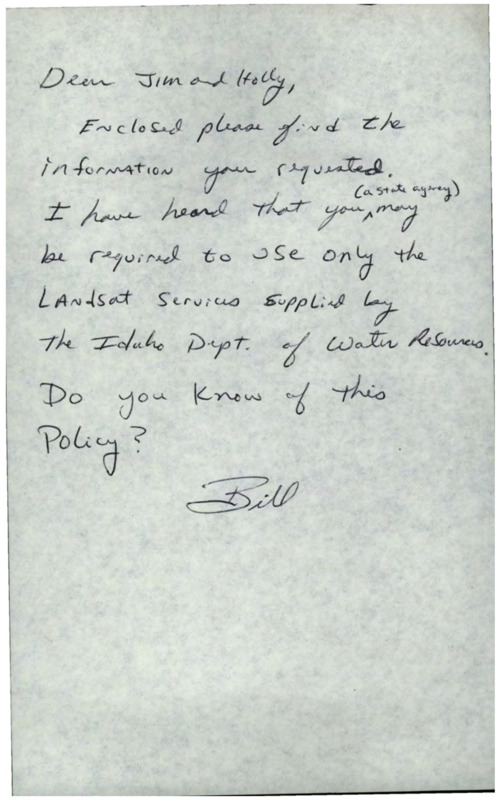 Dear Jim and Holly,
Enclosed please find the
information you requested.
(a state agency)
I have heard that you ^ may
be required to use only the
Landsat Services Supplied by
the Idaho Dept. of Water Resources.
Do you Know of this
Policy?
Bill